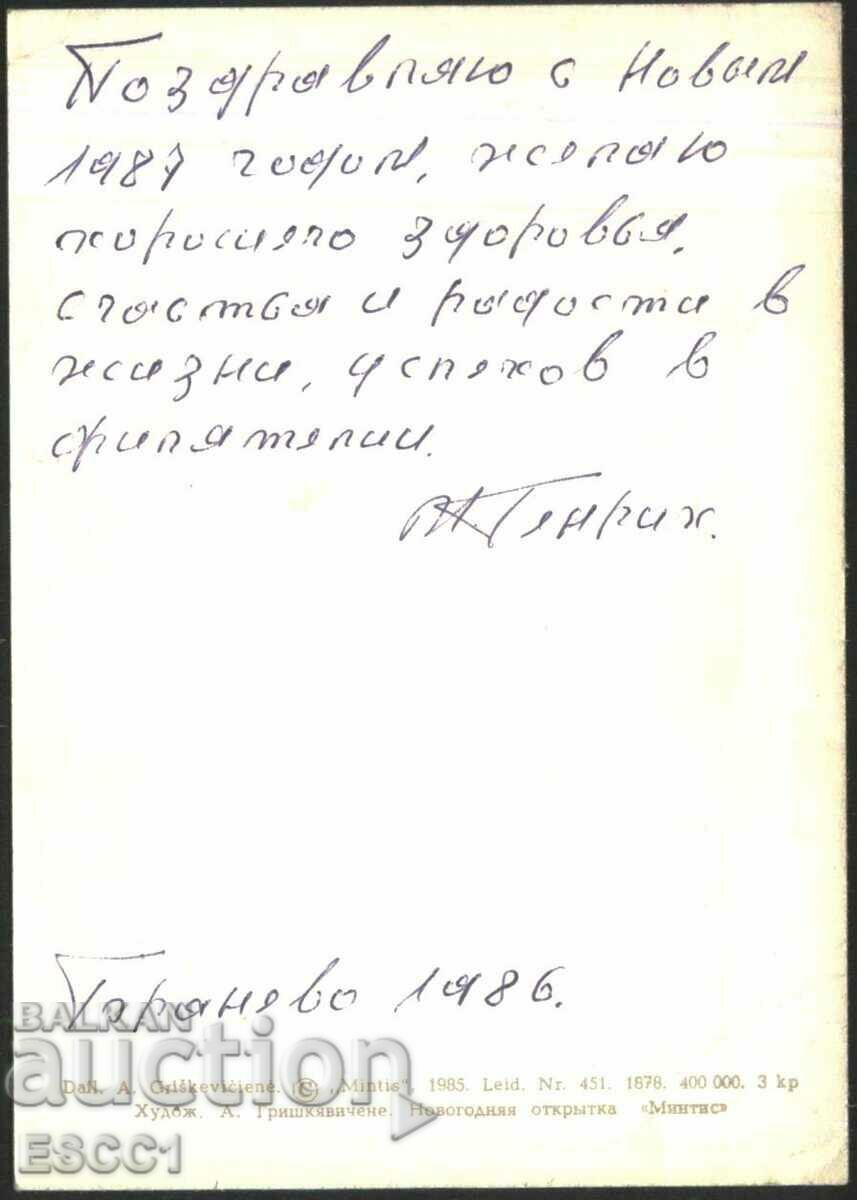 Поздравляю с Новым
1987 годом, желаю
хорошего здоровья,
счастья и радости в
жизни, успехов в
филателии.
Генрих.
1986.
BALKAN
auction
ESCC1
Dail. A. Griškevičienė. © „Mintis“, 1985. Leid. Nr. 451. 1878. 400 000. 3 kp
Худож. А. Гришкявичене. Новогодняя открытка «Минтис»